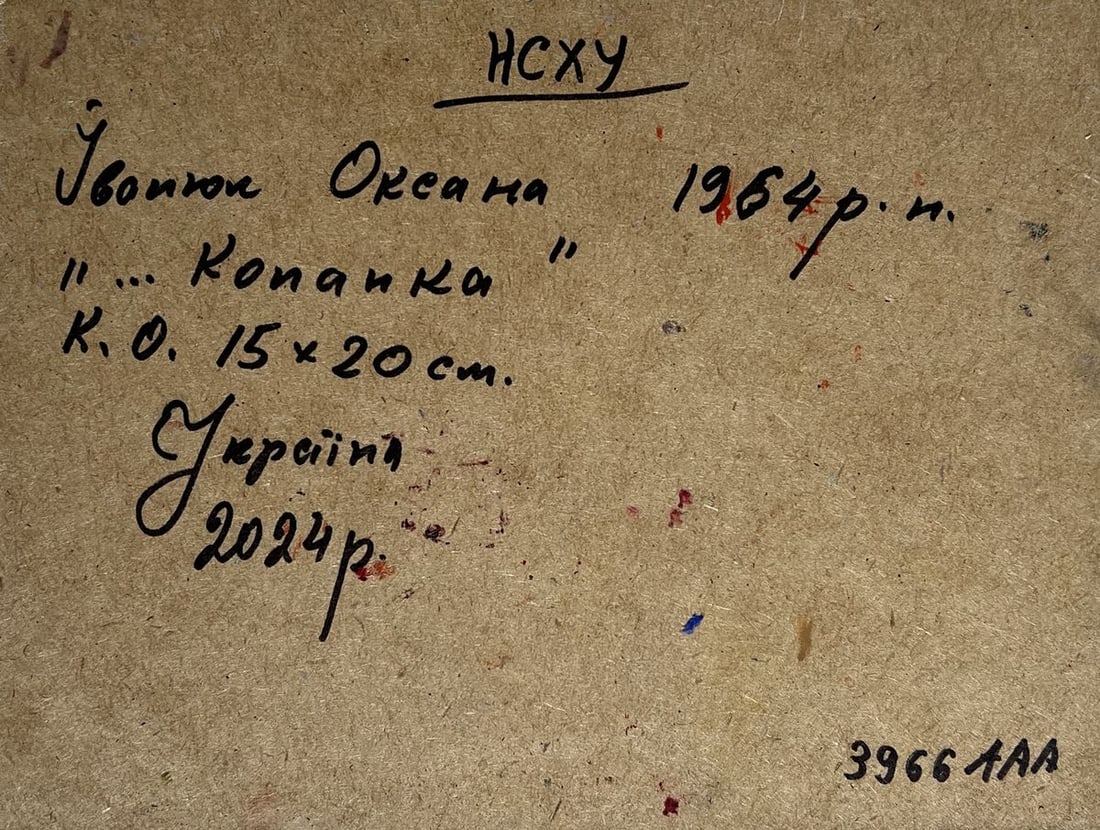 НСХУ
Івонюк Оксана 1964 р. н.
"... Копанка"
К. О. 15 x 20 см.
Україна
2024 р.
3966 1АА